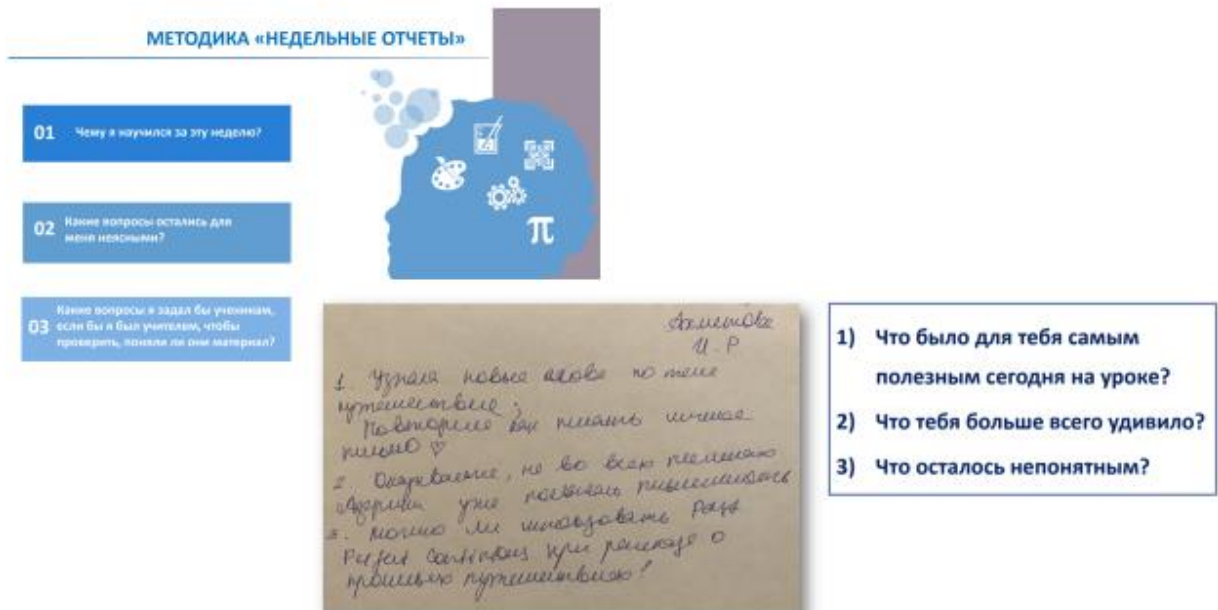 МЕТОДИКА «НЕДЕЛЬНЫЕ ОТЧЕТЫ»
01 Чему я научился за эту неделю?
02 Какие вопросы остались для
меня неясными?
03 Какие вопросы я задал бы ученикам,
если бы я был учителем, чтобы
проверить, поняли ли они материал?
π
И. Р
1. Узнала новые слова по теме
путешествие;
как писать личное
письмо ♡
2. не во всех
уже
3. Можно ли использовать Past
Perfect Continuous при рассказе о
прошлом
1) Что было для тебя самым
полезным сегодня на уроке?
2) Что тебя больше всего удивило?
3) Что осталось непонятным?